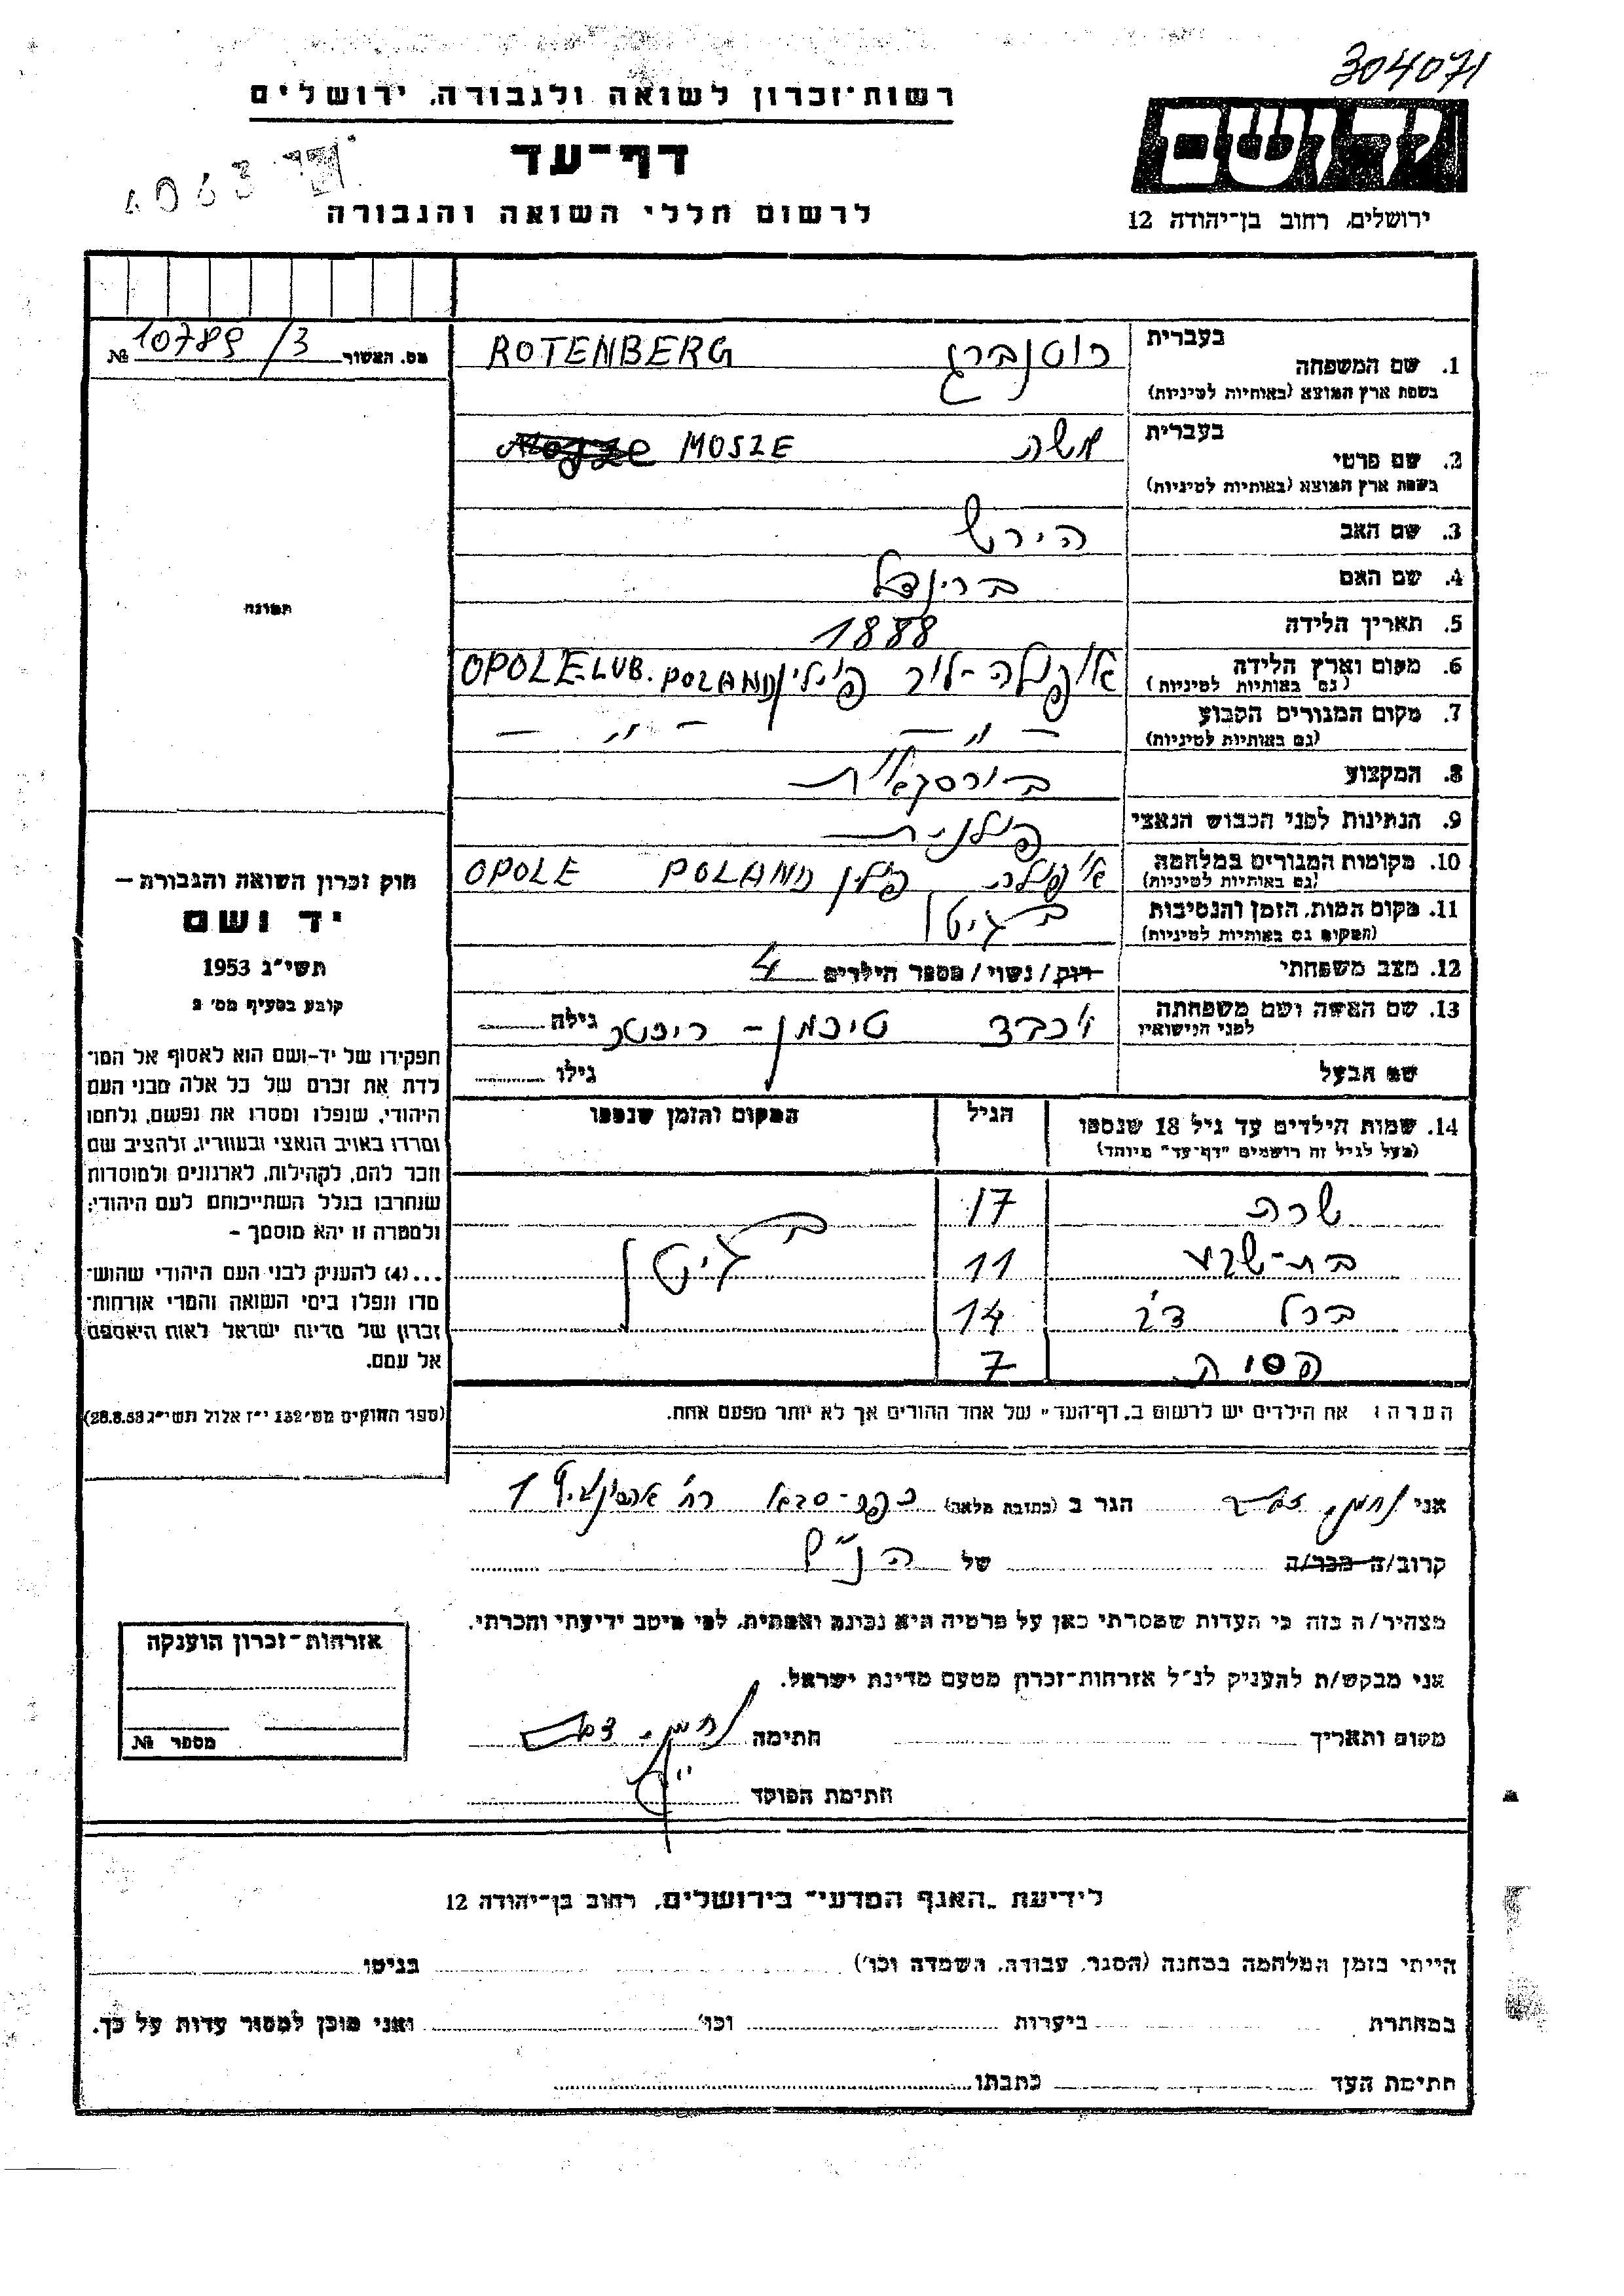 304071
רשות־זכרון לשואה ולגבורה, ירושלים
דף־עד
לרשום חללי השואה והגבורה
ירושלים, רחוב בן־יהודה 12
מס. האשור 10789/3 №
בעברית
1. שם המשפחה רוטנברג ROTENBERG
בשפת ארץ המוצא (באותיות לטיניות)
בעברית
2. שם פרטי משה MOSZE
בשפת ארץ המוצא (באותיות לטיניות)
3. שם האב הירש
4. שם האם בריינדל
5. תאריך הלידה 1888
6. מקום וארץ הלידה אופולה-לוב פולין OPOLE.LUB. POLAND
(גם באותיות לטיניות)
7. מקום המגורים הקבוע — " — — " —
(גם באותיות לטיניות)
8. המקצוע בורסקאית
9. הנתינות לפני הכבוש הנאצי פולנית
10. מקומות המגורים במלחמה אופולה פולין OPOLE POLAND
(גם באותיות לטיניות)
11. מקום המות, הזמן והנסיבות בגיטו
(המקום גם באותיות לטיניות)
12. מצב משפחתי רווק/נשוי/מספר הילדים 4
13. שם האשה ושם משפחתה
לפני הנישואין יוכבד גילה
שם הבעל גילו
14. שמות הילדים עד גיל 18 שנספו הגיל המקום והזמן שנספו
(מעל לגיל זה רושמים "דף־עד" מיוחד)
שרה 17
בת-שבע 11 בגיטו
14
7
הערה: את הילדים יש לרשום ב"דף־העד" של אחד ההורים אך לא יותר מפעם אחת.
תמונה
חוק זכרון השואה והגבורה –
יד ושם
תשי"ג 1953
קובע בסעיף מס' 2
תפקידו של יד-ושם הוא לאסוף אל המו־
לדת את זכרם של כל אלה מבני העם
היהודי, שנפלו ומסרו את נפשם, נלחמו
ומרדו באויב הנאצי ובעוזריו, ולהציב שם
וזכר להם, לקהילות, לארגונים ולמוסדות
שנחרבו בגלל השתייכותם לעם היהודי;
ולמטרה זו יהא מוסמך –
...(4) להעניק לבני העם היהודי שהוש־
מדו ונפלו בימי השואה והמרי אזרחות־
זכרון של מדינת ישראל לאות היאספם
אל עמם.
(ספר החוקים מס' 132 י"ז אלול תשי"ג 28.8.53)
אני נחמן הגר ב (כתובת מלאה) כפר-סבא רח' 1
קרוב/ה מכר/ה של הנ"ל
מצהיר/ה בזה כי העדות שמסרתי כאן על פרטיה היא נכונה ואמתית, לפי מיטב ידיעתי והכרתי.
אני מבקש/ת להעניק לנ"ל אזרחות־זכרון מטעם מדינת ישראל.
מקום ותאריך חתימה נחמן
חתימת הפוקד
אזרחות־זכרון הוענקה
מספר №
לידיעת "האגף המדעי" בירושלים, רחוב בן־יהודה 12
הייתי בזמן המלחמה במחנה (הסגר, עבודה, השמדה וכו') בגיטו
במחתרת ביערות וכו' ואני מוכן למסור עדות על כך.
חתימת העד כתבתו